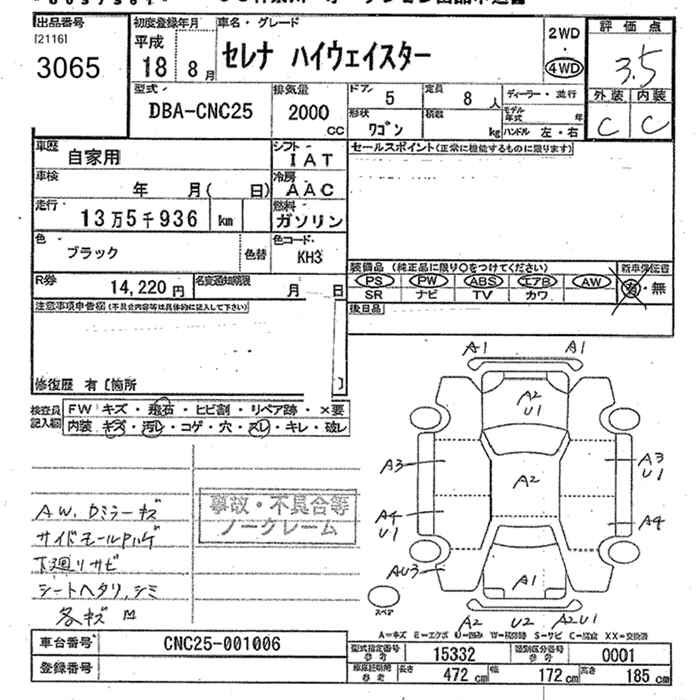 出品番号
[2116]
3065
初度登録年月
平成
18 8月
車名・グレード
セレナ ハイウェイスター
2WD
・
4WD
評価点
3.5
外装 内装
C C
型式
DBA-CNC25
排気量
2000
CC
ドア
5
定員
8 人
ディーラー・並行
形状
ワゴン
積載
kg
モデル年式 年
ハンドル 左・右
車歴
自家用
シフト
IAT
セールスポイント(正常に機能するものに限ります)
車検
年 月( 日)
冷房
AAC
走行
13万5千936 km
燃料
ガソリン
色
ブラック
色替
色コード
KH3
装備品 (純正品に限り○をつけてください)
新車保証書
PS PW ABS エアB AW
有・無
SR ナビ TV カワ
R券
14,220円
名変通知期限
月 日
後日品
注意事項申告欄(不具合内容等は具体的に記入して下さい)
修復歴 有 [箇所 ]
検査員記入欄
FW キズ・飛石・ヒビ割・リペア跡・×要
内装 キズ・汚レ・コゲ・穴・スレ・キレ・破レ
A1 A1
A2
U1
A3
A2
A3
U1
A4
U1
A4
AU3
A1
スペア
A2 U2 A2U1
事故・不具合等
ノークレーム
AW、Dミラーキズ
サイドモールPハゲ
下廻リサビ
シートヘタリ、シミ
各キズ凹
A=キズ E=エクボ U=凹み W=補修跡 S=サビ C=腐食 XX=交換済
車台番号
CNC25-001006
型式指定番号
参考
15332
類別区分番号
参考
0001
登録番号
車検証記載
参考
長さ
472 cm
幅
172 cm
高さ
185 cm